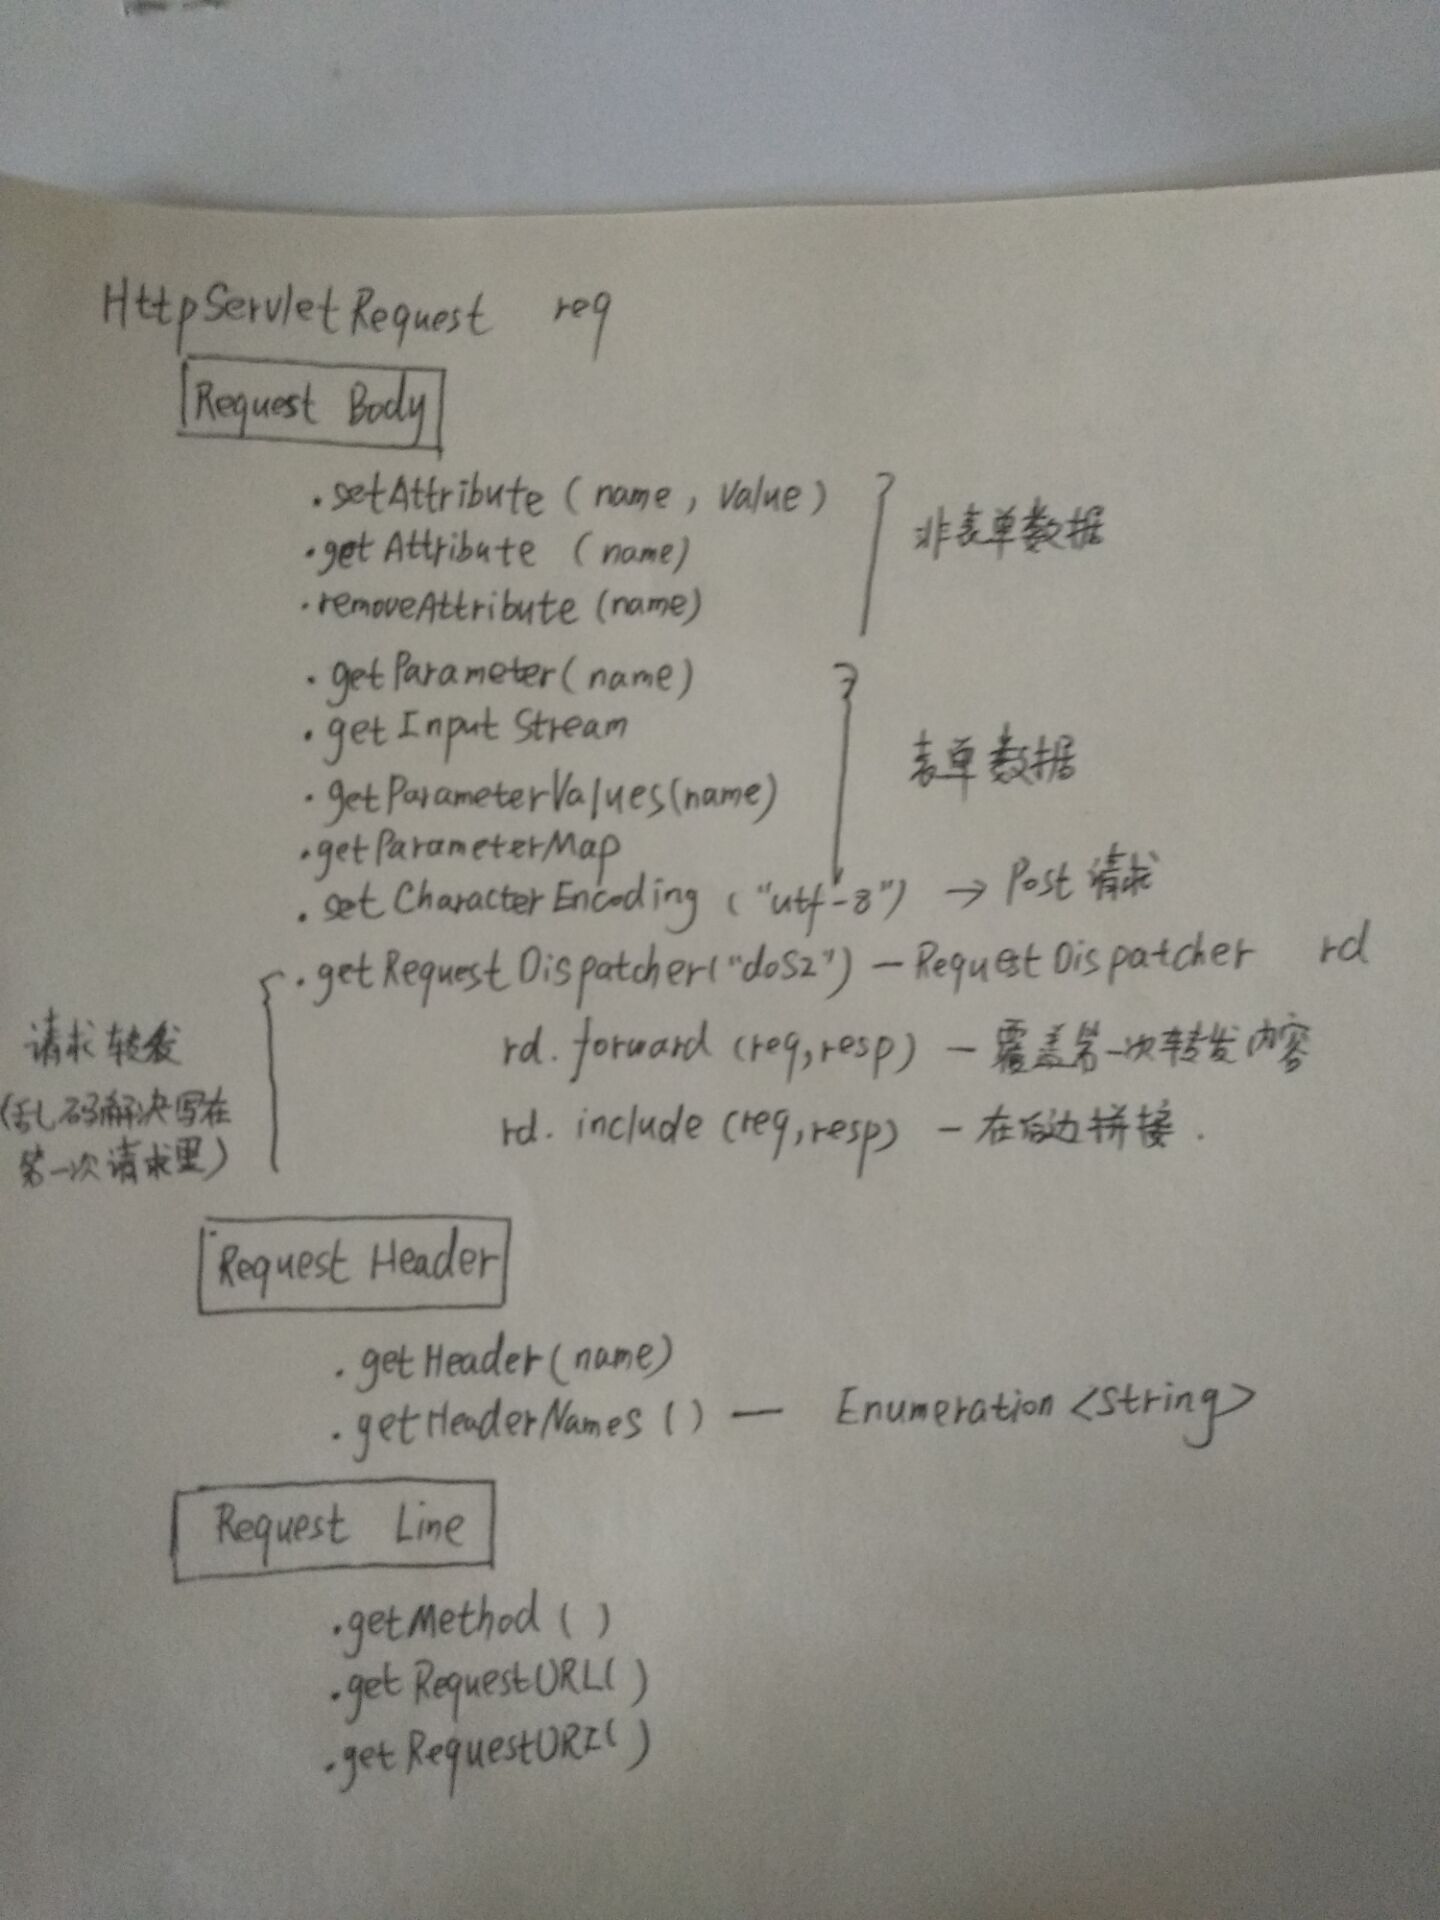 HttpServletRequest req
Request Body
.setAttribute (name, Value)
.getAttribute (name)
.removeAttribute (name)
非表单数据
.getParameter(name)
.getInputStream
.getParameterValues(name)
.getParameterMap
表单数据
.setCharacterEncoding ("utf-8") → Post 请求
.getRequestDispatcher("doS2") — RequestDispatcher rd
rd. forward (req,resp) — 覆盖第一次转发内容
rd. include (req,resp) — 在后边拼接.
请求转发
(乱码解决写在
第一次请求里)
Request Header
.getHeader(name)
.getHeaderNames () — Enumeration <String>
Request Line
.getMethod ()
.getRequestURL()
.getRequestURI()